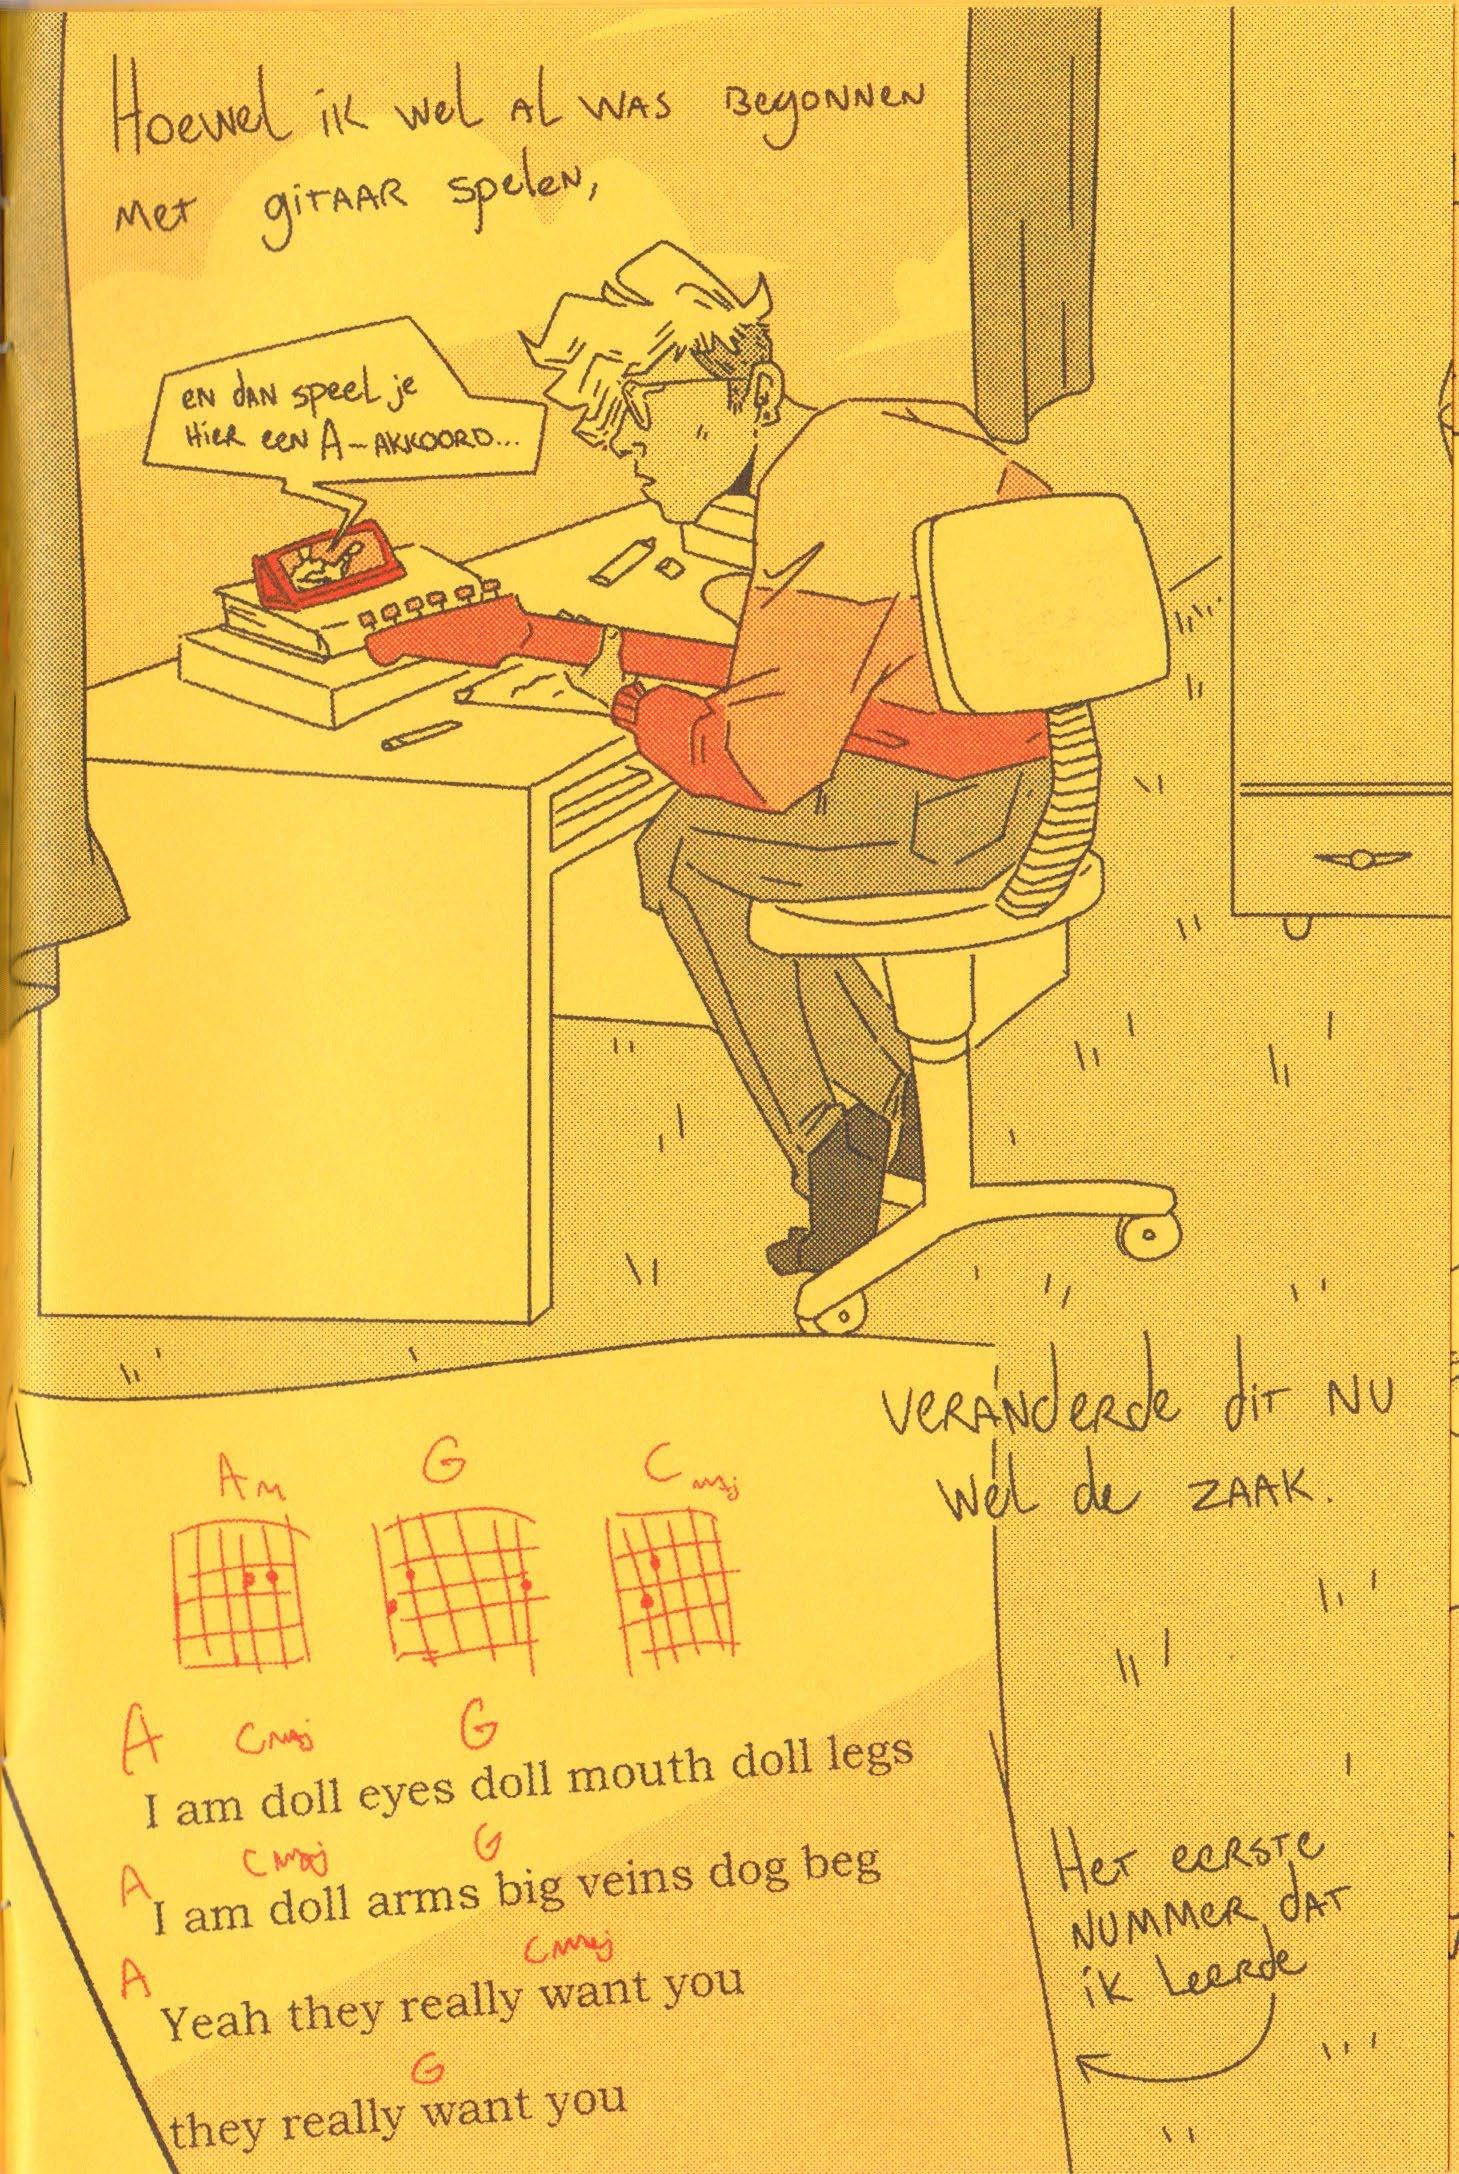 Hoewel ik wel al was begonnen
met gitaar spelen,
en dan speel je
hier een A-akkoord...
veranderde dit nu
wél de zaak.
Am G Cmaj
A Cmaj G
I am doll eyes doll mouth doll legs
A Cmaj G
I am doll arms big veins dog beg
A Cmaj
Yeah they really want you
G
they really want you
Het eerste
nummer dat
ik leerde